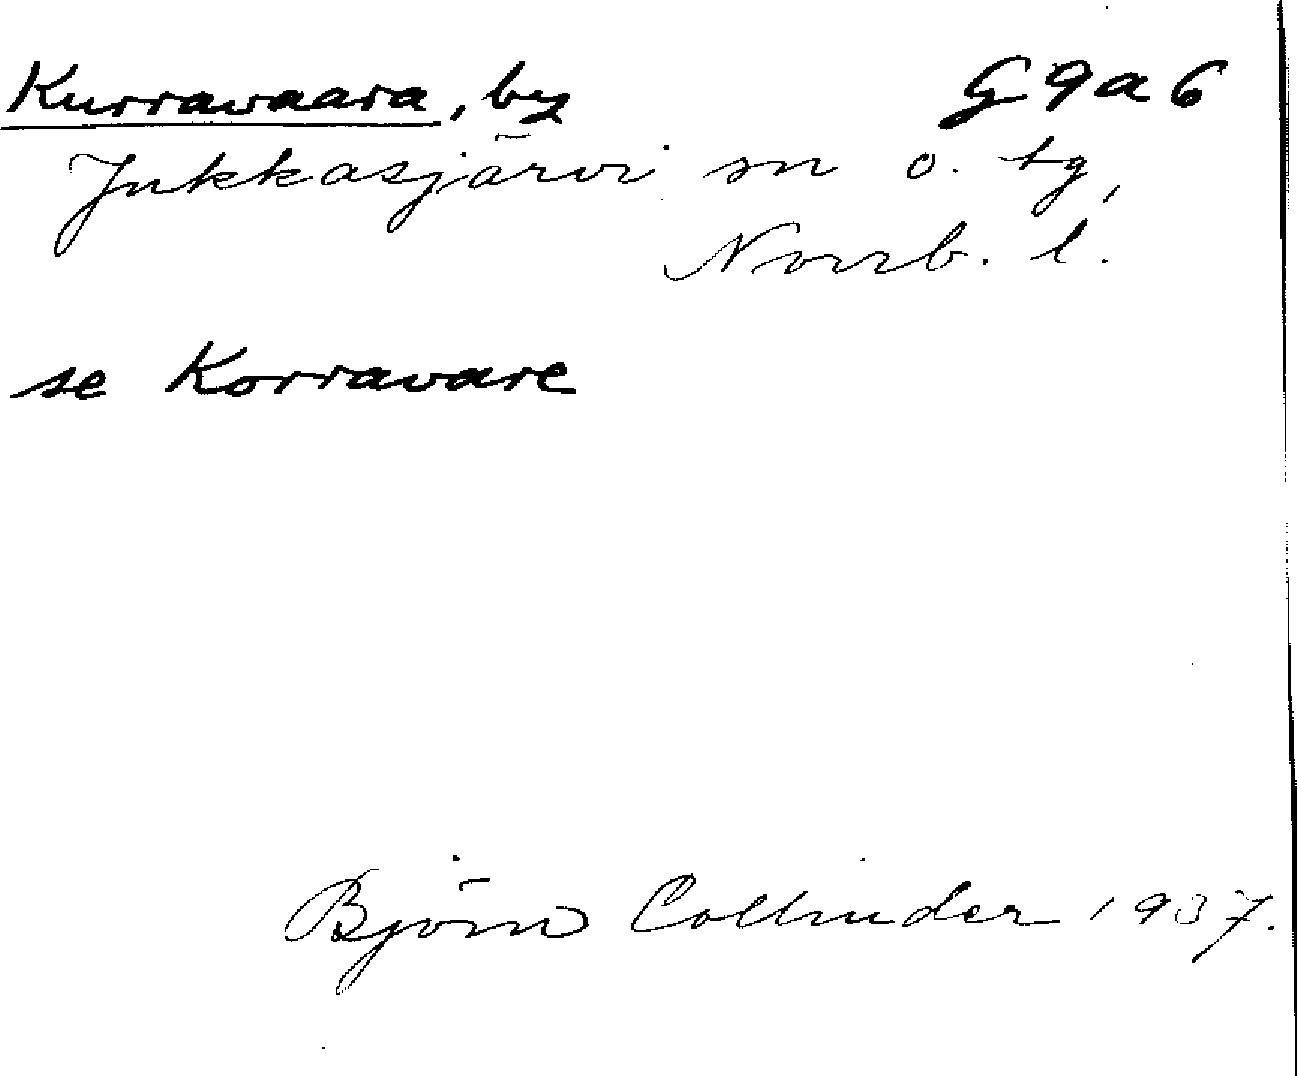 Kurravaara, by G 9 a 6
Jukkasjärvi sn o. tg,
Norrb. l.
se Korravare
Björn Collinder 1937.